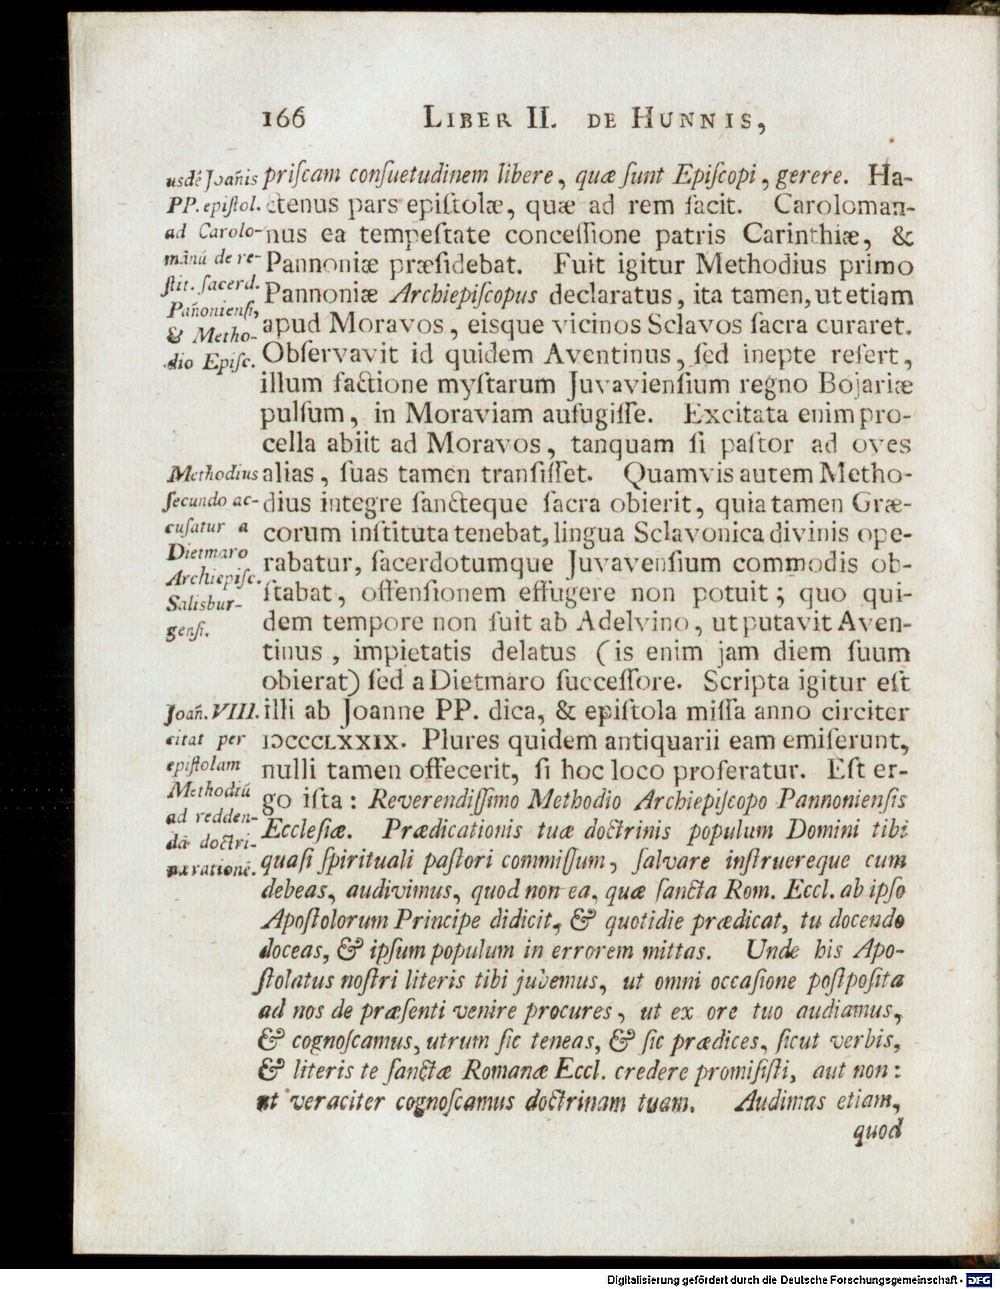 166 LIBER II. DE HUNNIS,
usdē Joan̄is
PP. epiſtol.
ad Carolo-
mānū de re-
ſtit. ſacerd.
Pan̄onienſi,
& Metho-
dio Epiſc.
priſcam conſuetudinem libere, quæ ſunt Epiſcopi, gerere. Ha-
ctenus pars epiſtolæ, quæ ad rem facit. Caroloman-
nus ea tempeſtate conceſſione patris Carinthiæ, &
Pannoniæ præſidebat. Fuit igitur Methodius primo
Pannoniæ Archiepiſcopus declaratus, ita tamen, ut etiam
apud Moravos, eisque vicinos Sclavos ſacra curaret.
Obſervavit id quidem Aventinus, ſed inepte refert,
illum factione myſtarum Juvavienſium regno Bojariæ
pulſum, in Moraviam aufugiſſe. Excitata enim pro-
cella abiit ad Moravos, tanquam ſi paſtor ad oves
Methodius
ſecundo ac-
cuſatur a
Dietmaro
Archiepiſc.
Salisbur-
genſi.
alias, ſuas tamen tranſiſſet. Quamvis autem Metho-
dius integre ſancteque ſacra obierit, quia tamen Græ-
corum inſtituta tenebat, lingua Sclavonica divinis ope-
rabatur, ſacerdotumque Juvavenſium commodis ob-
ſtabat, offenſionem effugere non potuit; quo qui-
dem tempore non fuit ab Adelvino, ut putavit Aven-
tinus, impietatis delatus (is enim jam diem ſuum
obierat) ſed a Dietmaro ſucceſſore. Scripta igitur eſt
Joan̄. VIII.
citat per
epiſtolam
Methodiū
ad redden-
dā doctri-
næ rationē.
illi ab Joanne PP. dica, & epiſtola miſſa anno circiter
IƆCCCLXXIX. Plures quidem antiquarii eam emiſerunt,
nulli tamen offecerit, ſi hoc loco proferatur. Eſt er-
go iſta: Reverendiſſimo Methodio Archiepiſcopo Pannonienſis
Eccleſiæ. Prædicationis tuæ doctrinis populum Domini tibi
quaſi ſpirituali paſtori commiſſum, ſalvare inſtruereque cum
debeas, audivimus, quod non ea, quæ ſancta Rom. Eccl. ab ipſo
Apoſtolorum Principe didicit, & quotidie prædicat, tu docendo
doceas, & ipſum populum in errorem mittas. Unde his Apo-
ſtolatus noſtri literis tibi jubemus, ut omni occaſione poſtpoſita
ad nos de præſenti venire procures, ut ex ore tuo audiamus,
& cognoſcamus, utrum ſic teneas, & ſic prædices, ſicut verbis,
& literis te ſanctæ Romanæ Eccl. credere promiſiſti, aut non:
ut veraciter cognoſcamus doctrinam tuam. Audimus etiam,
quod
Digitalisierung gefördert durch die Deutsche Forschungsgemeinschaft - DFG